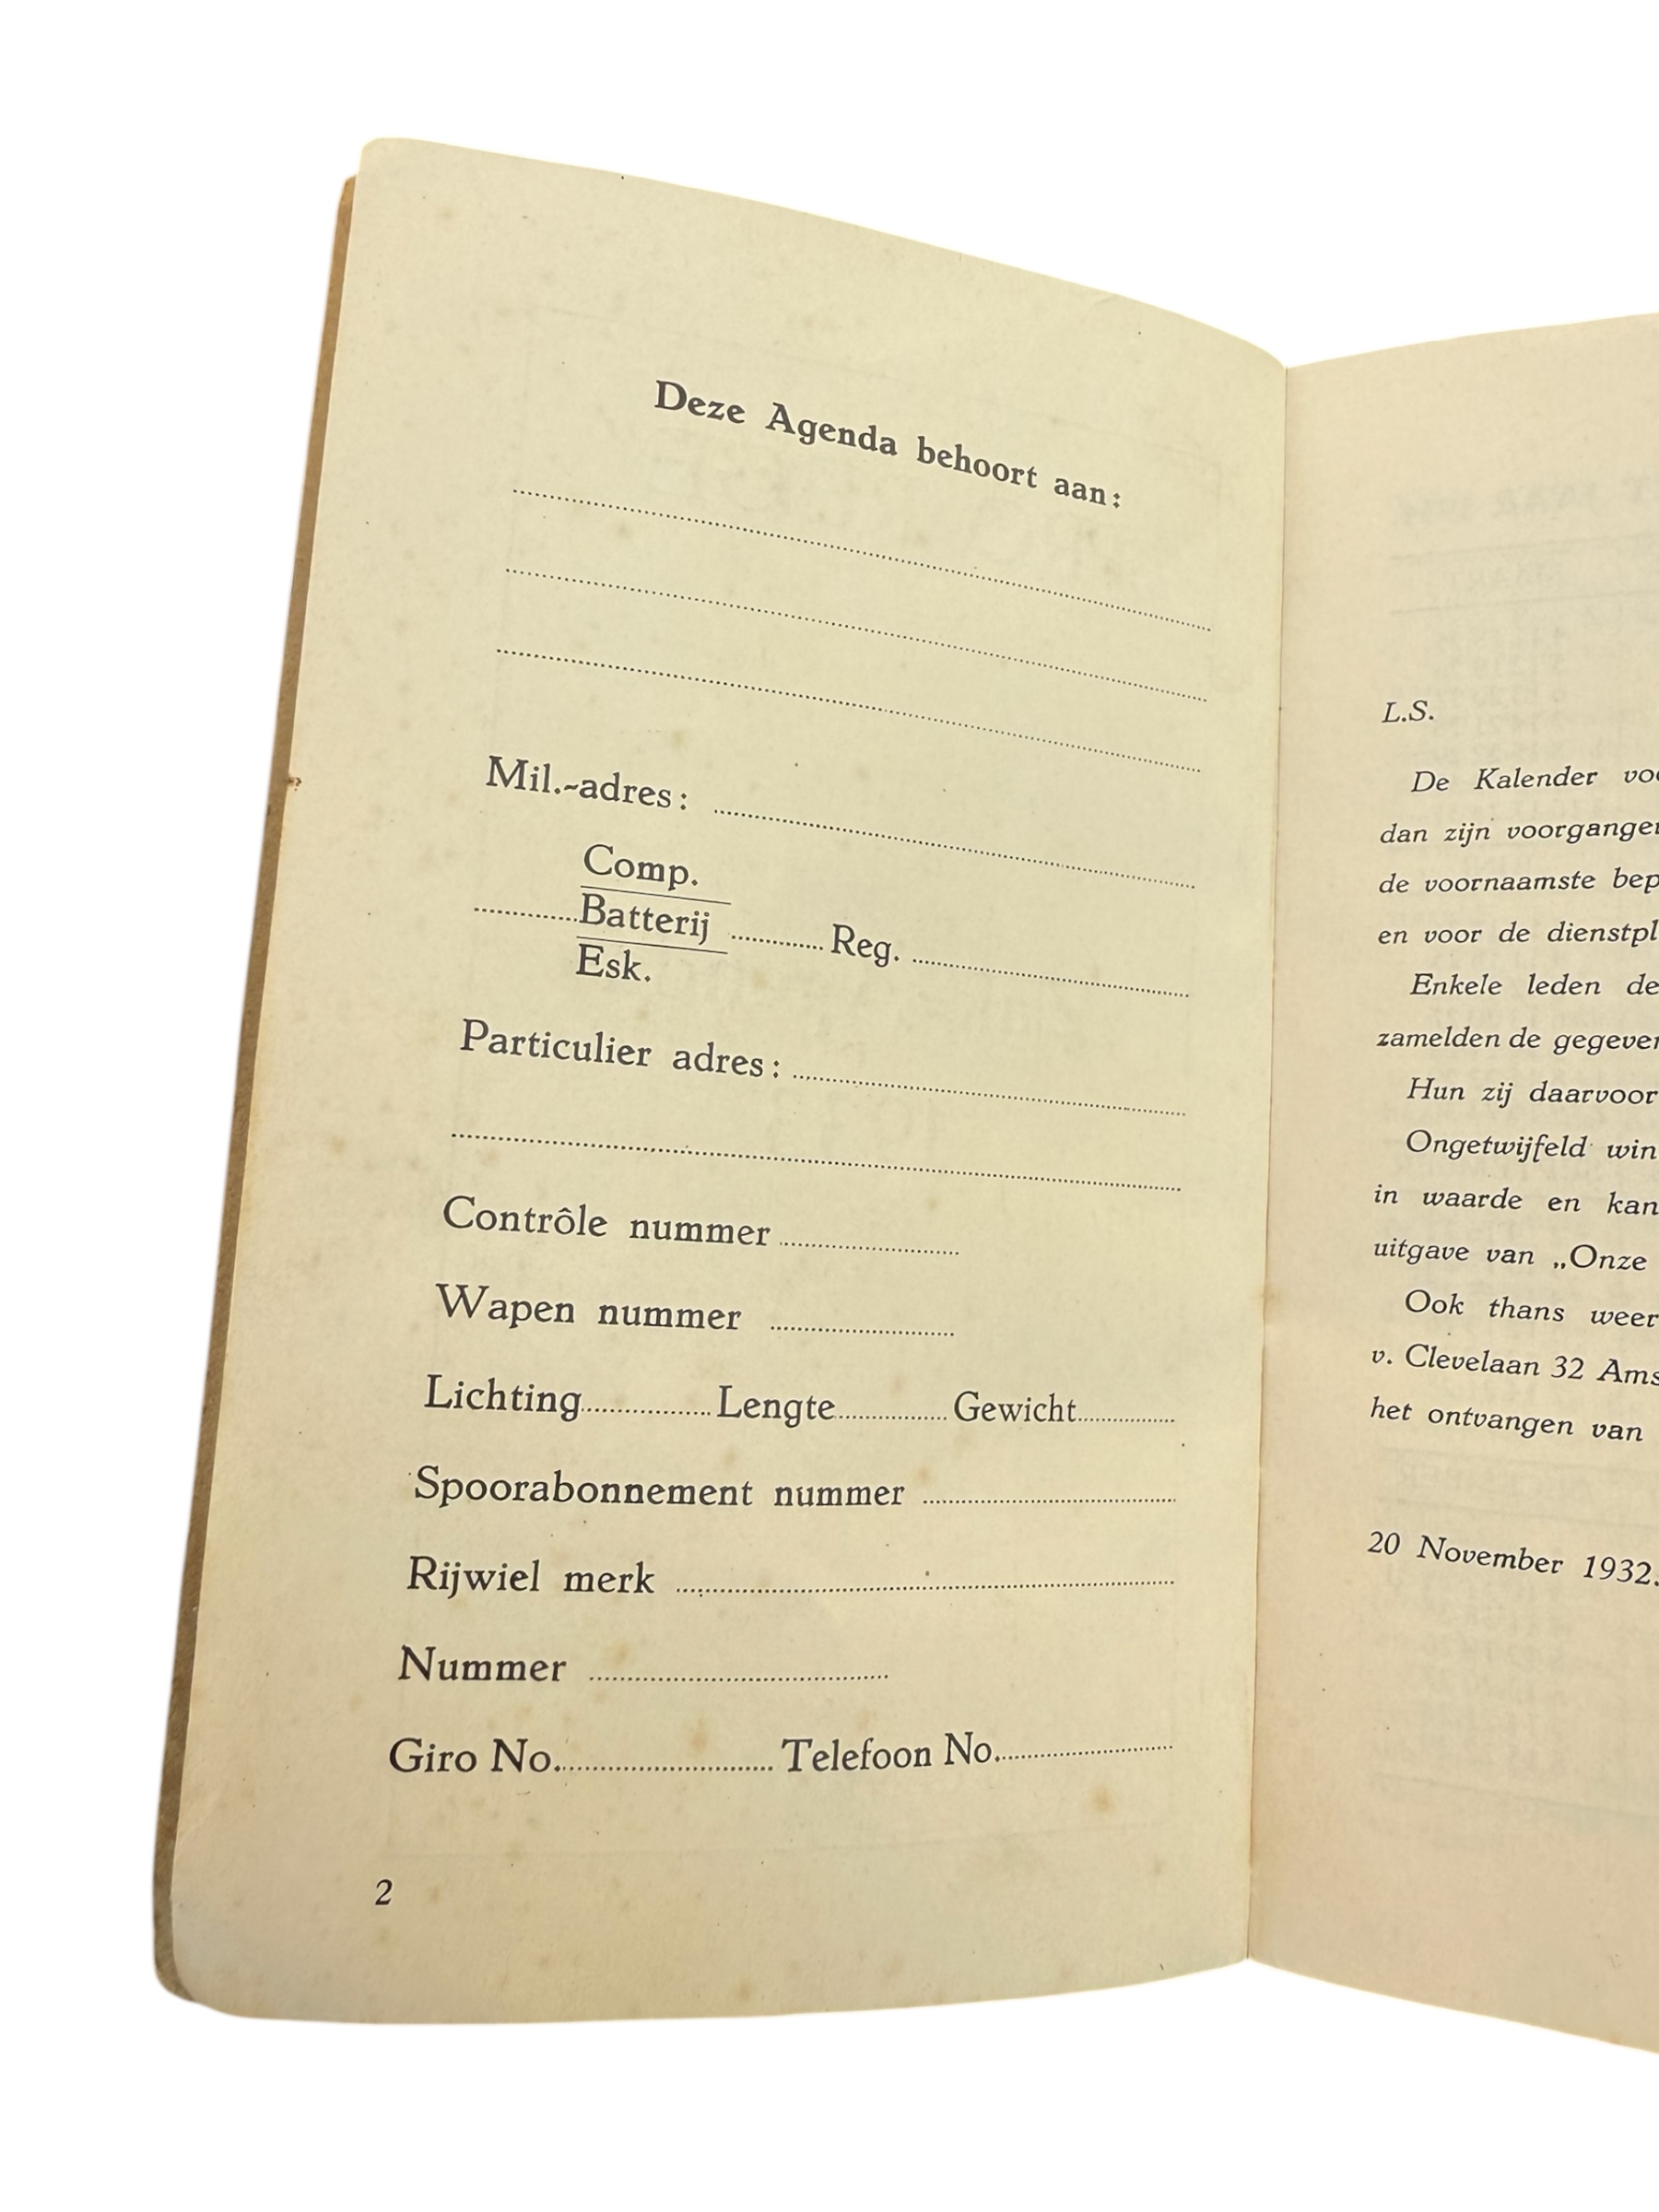 Deze Agenda behoort aan:
Mil.-adres:
Comp.
Batterij Reg.
Esk.
Particulier adres:
Contrôle nummer
Wapen nummer
Lichting Lengte Gewicht
Spoorabonnement nummer
Rijwiel merk
Nummer
Giro No. Telefoon No.
2
L.S.
De Kalender
dan zijn
de voornaamste
en voor de
Enkele leden
zamelden de
Hun zij daarvoor
Ongetwijfeld
in waarde en kan
uitgave van „Onze
Ook thans weer
v. Clevelaan 32
het ontvangen van
20 November 1932.